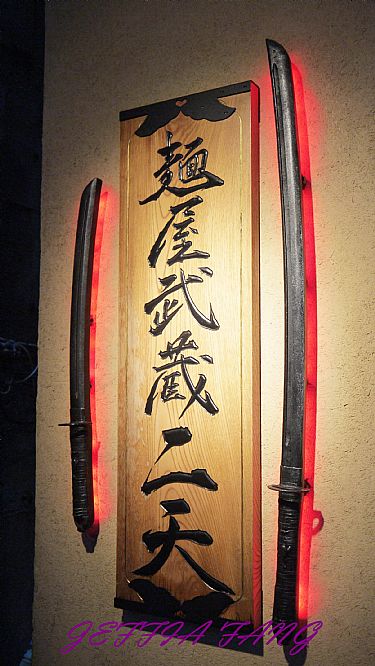 麺屋武蔵二天
JETTIA FANG